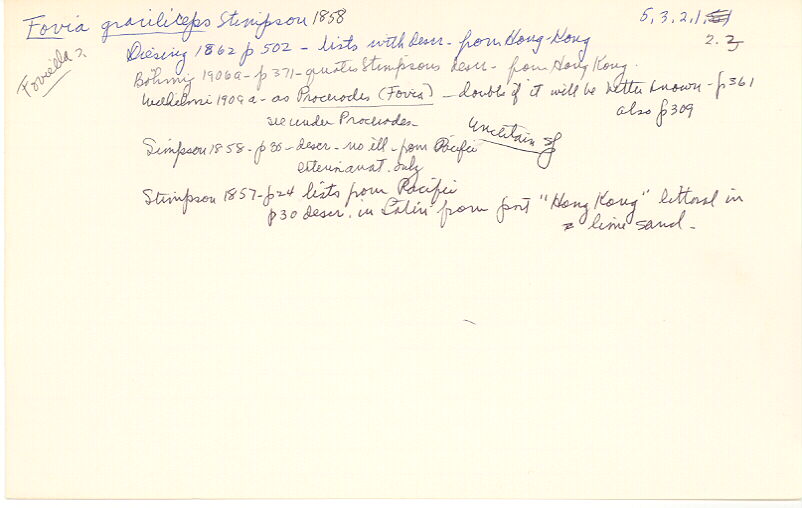 Fovia graciliceps Stimpson 1858
5, 3, 2, 1,
2. 2
Foviella?
Diesing 1862 p 502 - lists with descr. from Hong-Kong
Böhmig 1906a - p 371 - quotes Stimpsons descr. - from Hong Kong.
Wilhelmi 1909a - as Procerodes (Fovia) - doubts if it will be better known - p 361
also p 309
see under Procerodes -
Uncertain sp
Stimpson 1858 - p 30 - descr - no ill - from Pacific
extern anat. only
Stimpson 1857 - p 24 lists from Pacific
p 30 descr. in Latin from port "Hong Kong" littoral in
lime sand -